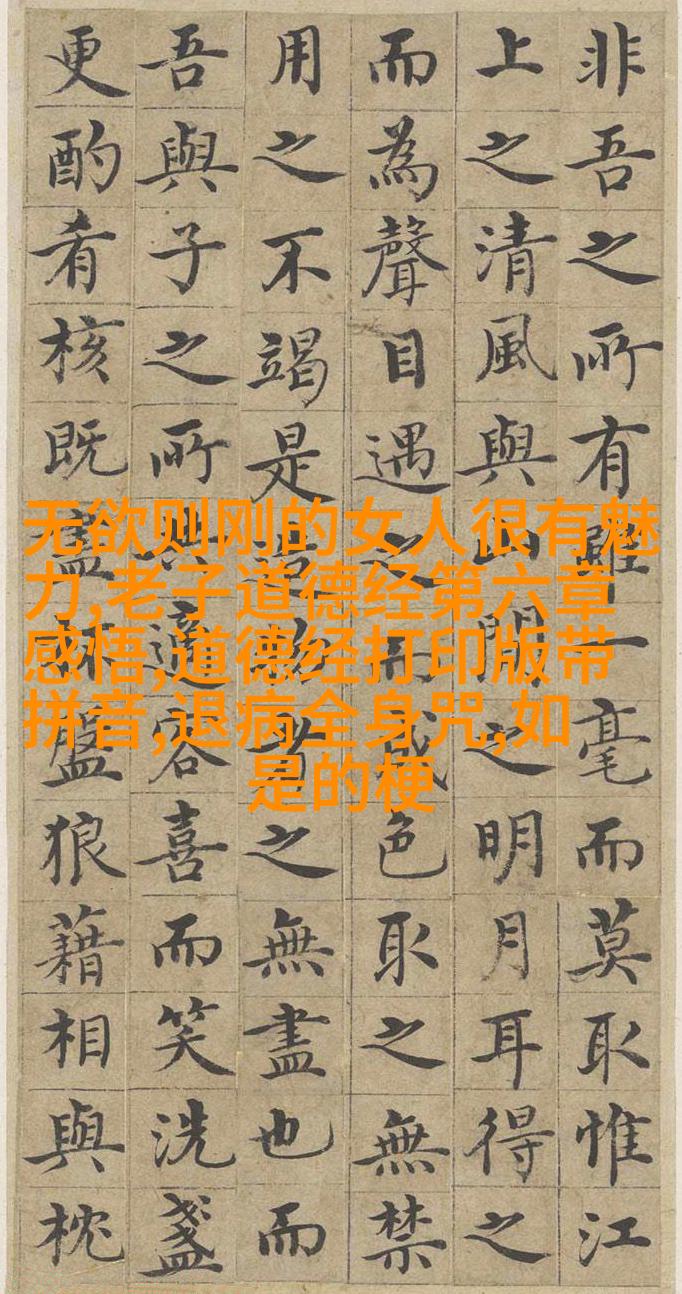 非吾之所有雖一毫而莫取惟江
上之清風與山間之明月耳得之
而為聲目遇之而成色取之無禁
用之不竭是造物者之無盡也而
吾與子之所共適客喜而笑洗盞
更酌肴核既盡杯盤狼藉相與枕
无欲则刚的女人很有魅
力,老子道德经第六章
感悟,道德经打印版带
拼音,退病全身咒,如
是的梗